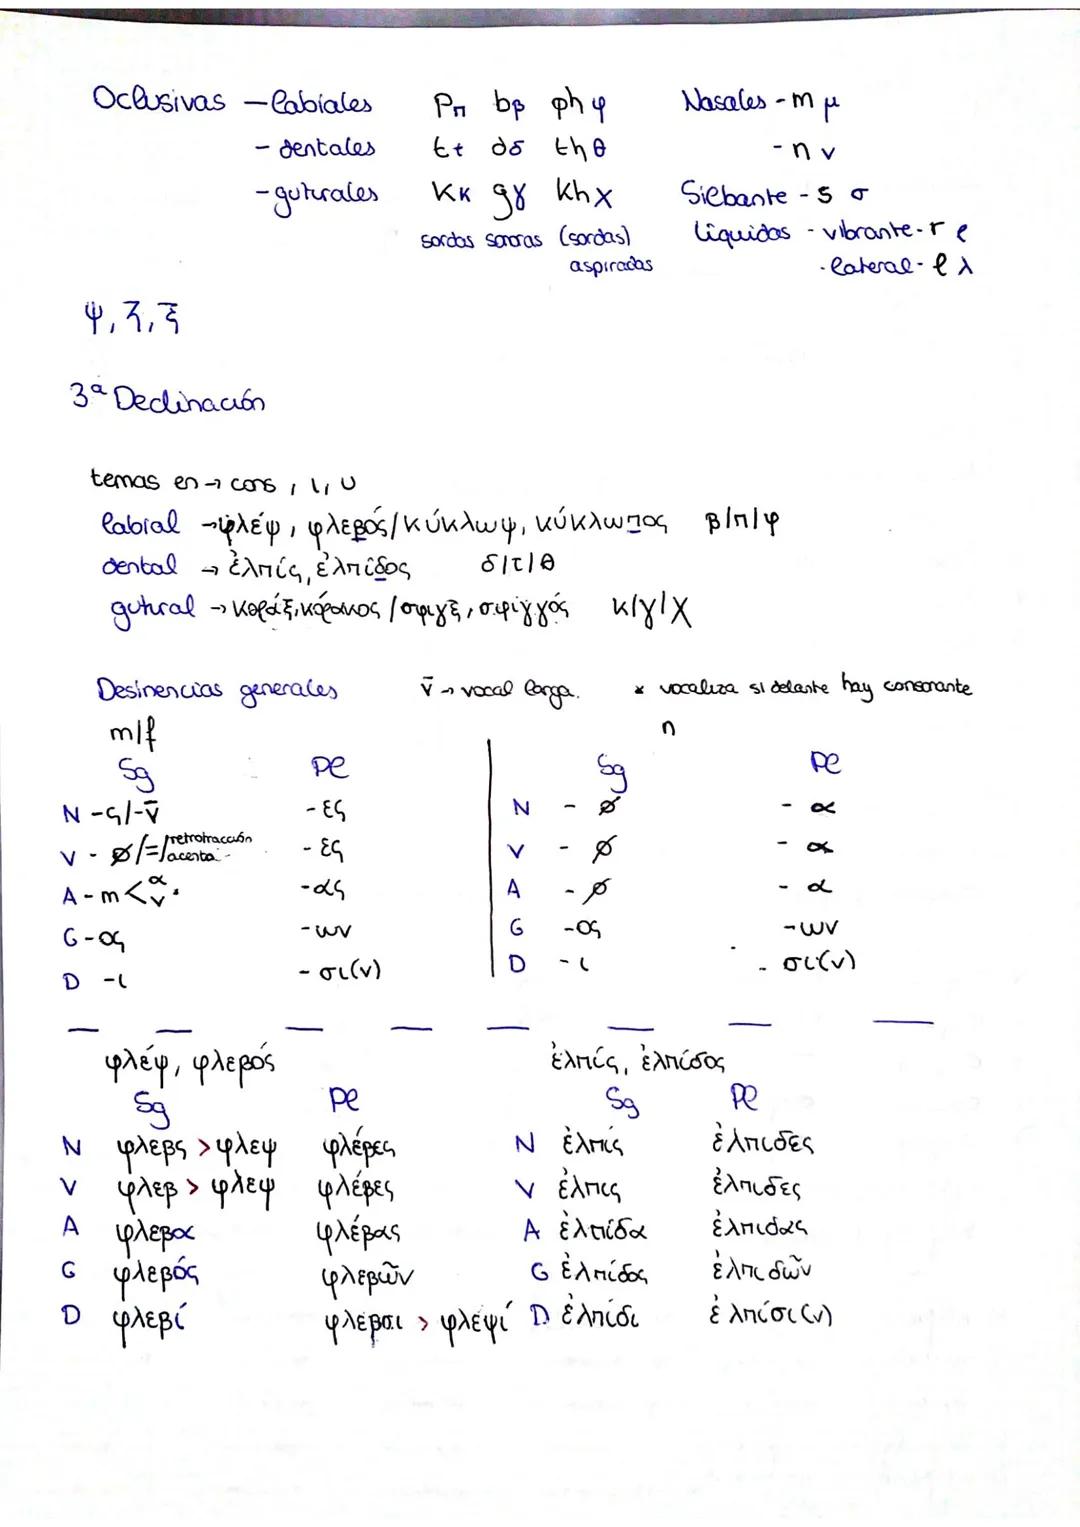 Oclusivas - labiales p π b β ph φ Nasales - m μ
- dentales t τ d δ th θ - n ν
- guturales K κ g γ kh χ Silbante - s σ
sordas sonoras (sordas) líquidas - vibrante - r ρ
aspiradas - lateral - l λ
ψ, ζ, ξ
3ª Declinación
temas en → cons, ι, υ
labial → φλέψ, φλεβός / κύκλωψ, κύκλωπος β/π/φ
dental → ἐλπίς, ἐλπίδος δ/τ/θ
gutural → κοράξ, κόρακος / σφιγξ, σφίγγός κ/γ/χ
Desinencias generales v̄ → vocal larga. * vocaliza si delante hay consonante
m/f n
Sg Pl Sg Pl
N -ς/-v̄ -ες N - ∅ - α
V - ∅/=/retrotracción acento - -ες V - ∅ - α
A - m < α ν * -ας A - ∅ - α
G -ος -ων G -ος -ων
D -ι - σι(ν) D -ι - σι(ν)
φλέψ, φλεβός ἐλπίς, ἐλπίδος
Sg Pl Sg Pl
N φλεβς > φλεψ φλέβες N ἐλπίς ἐλπιδες
V φλεβ > φλεψ φλέβες V ἐλπις ἐλπιδες
A φλεβα φλέβας A ἐλπίδα ἐλπιδας
G φλεβός φλεβῶν G ἐλπίδος ἐλπιδῶν
D φλεβί φλεβσι > φλεψί D ἐλπίδι ἐλπίσι(ν)